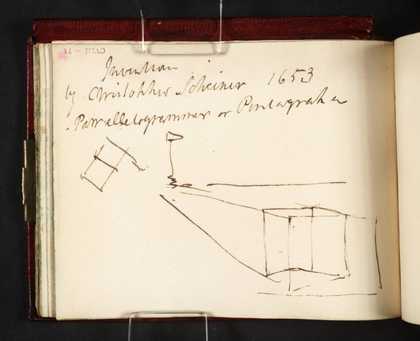 Invention
by Christopher Scheiner 1653
Parrallelogrammer or Pentagrapher